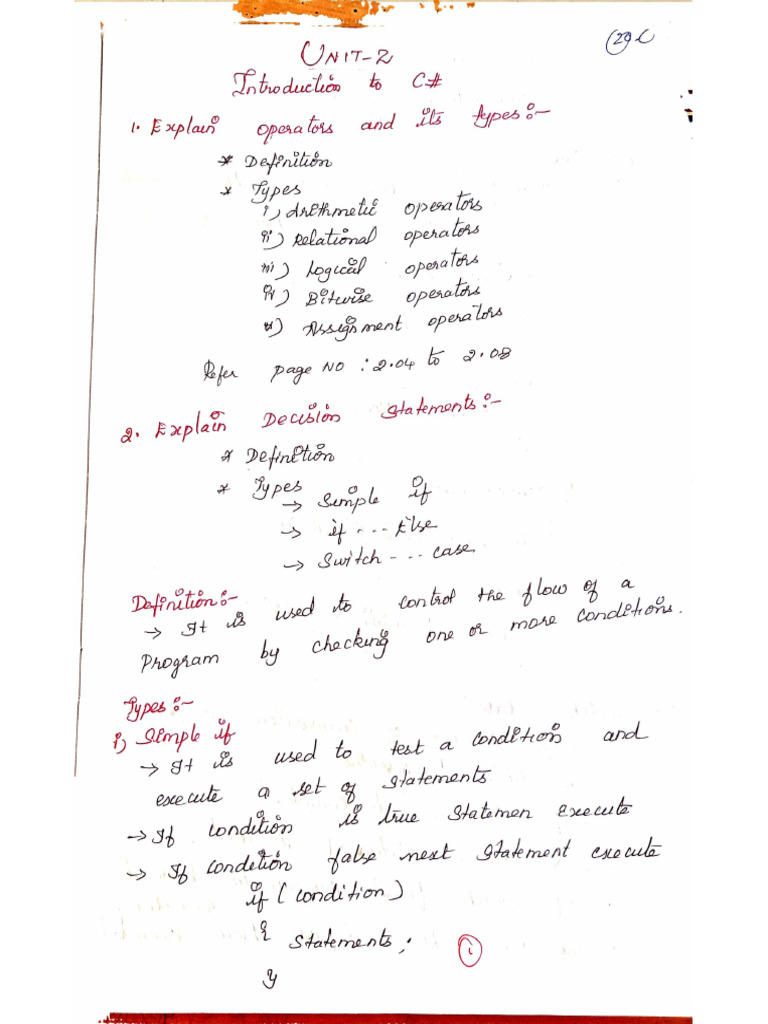 UNIT-2
Introduction to C#
1. Explain operators and its types:-
* Definition
* Types
i) Arithmetic operators
ii) Relational operators
iii) Logical operators
iv) Bitwise operators
v) Assignment operators
Refer page NO : 2.04 to 2.08
2. Explain Decision statements:-
* Definition
* Types
→ Simple if
→ if ... Else
→ Switch --- case
Definition:-
→ It is used to control the flow of a
Program by checking one or more conditions.
Types:-
i) Simple if
→ It is used to test a condition and
execute a set of statements
→ If condition is true Statemen execute
→ If condition false next statement execute
if (condition)
{
Statements;
}
1